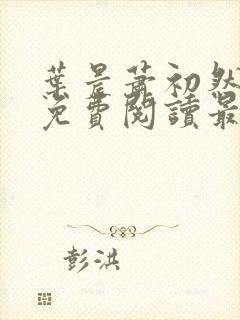 葉辰蕭初然
免費閱讀最
彭洪